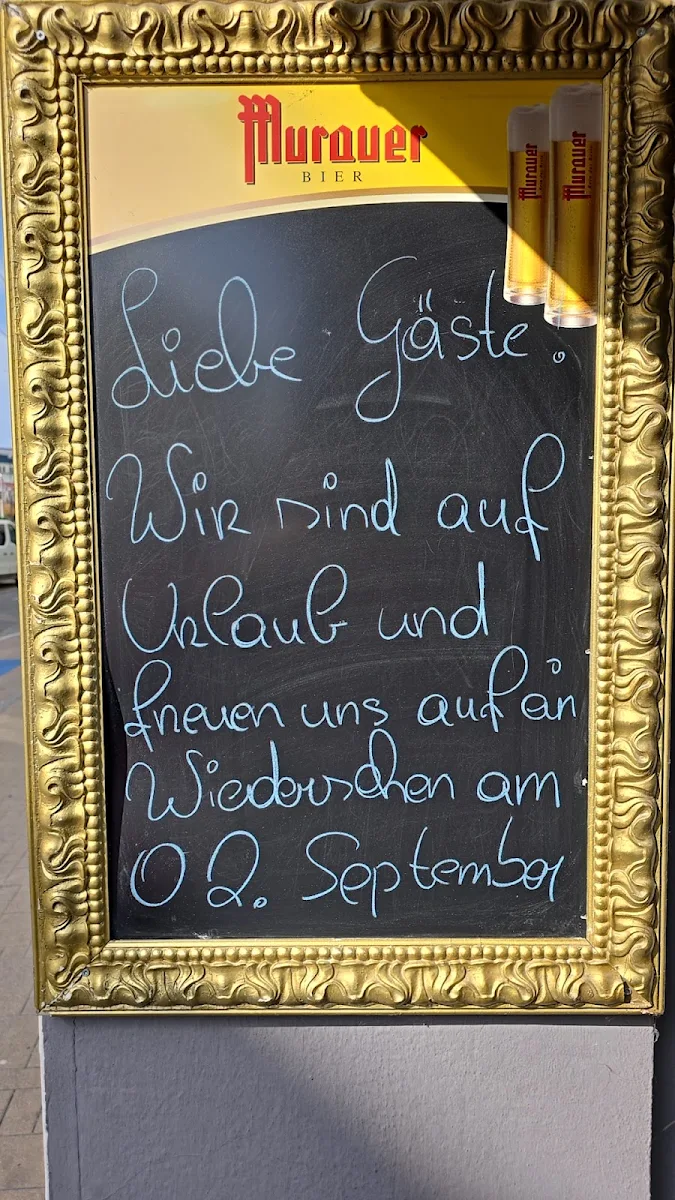 Murauer
BIER
Murauer
Murauer
Liebe Gäste.
Wir sind auf
Urlaub und
freuen uns auf ein
Wiedersehen am
02. September